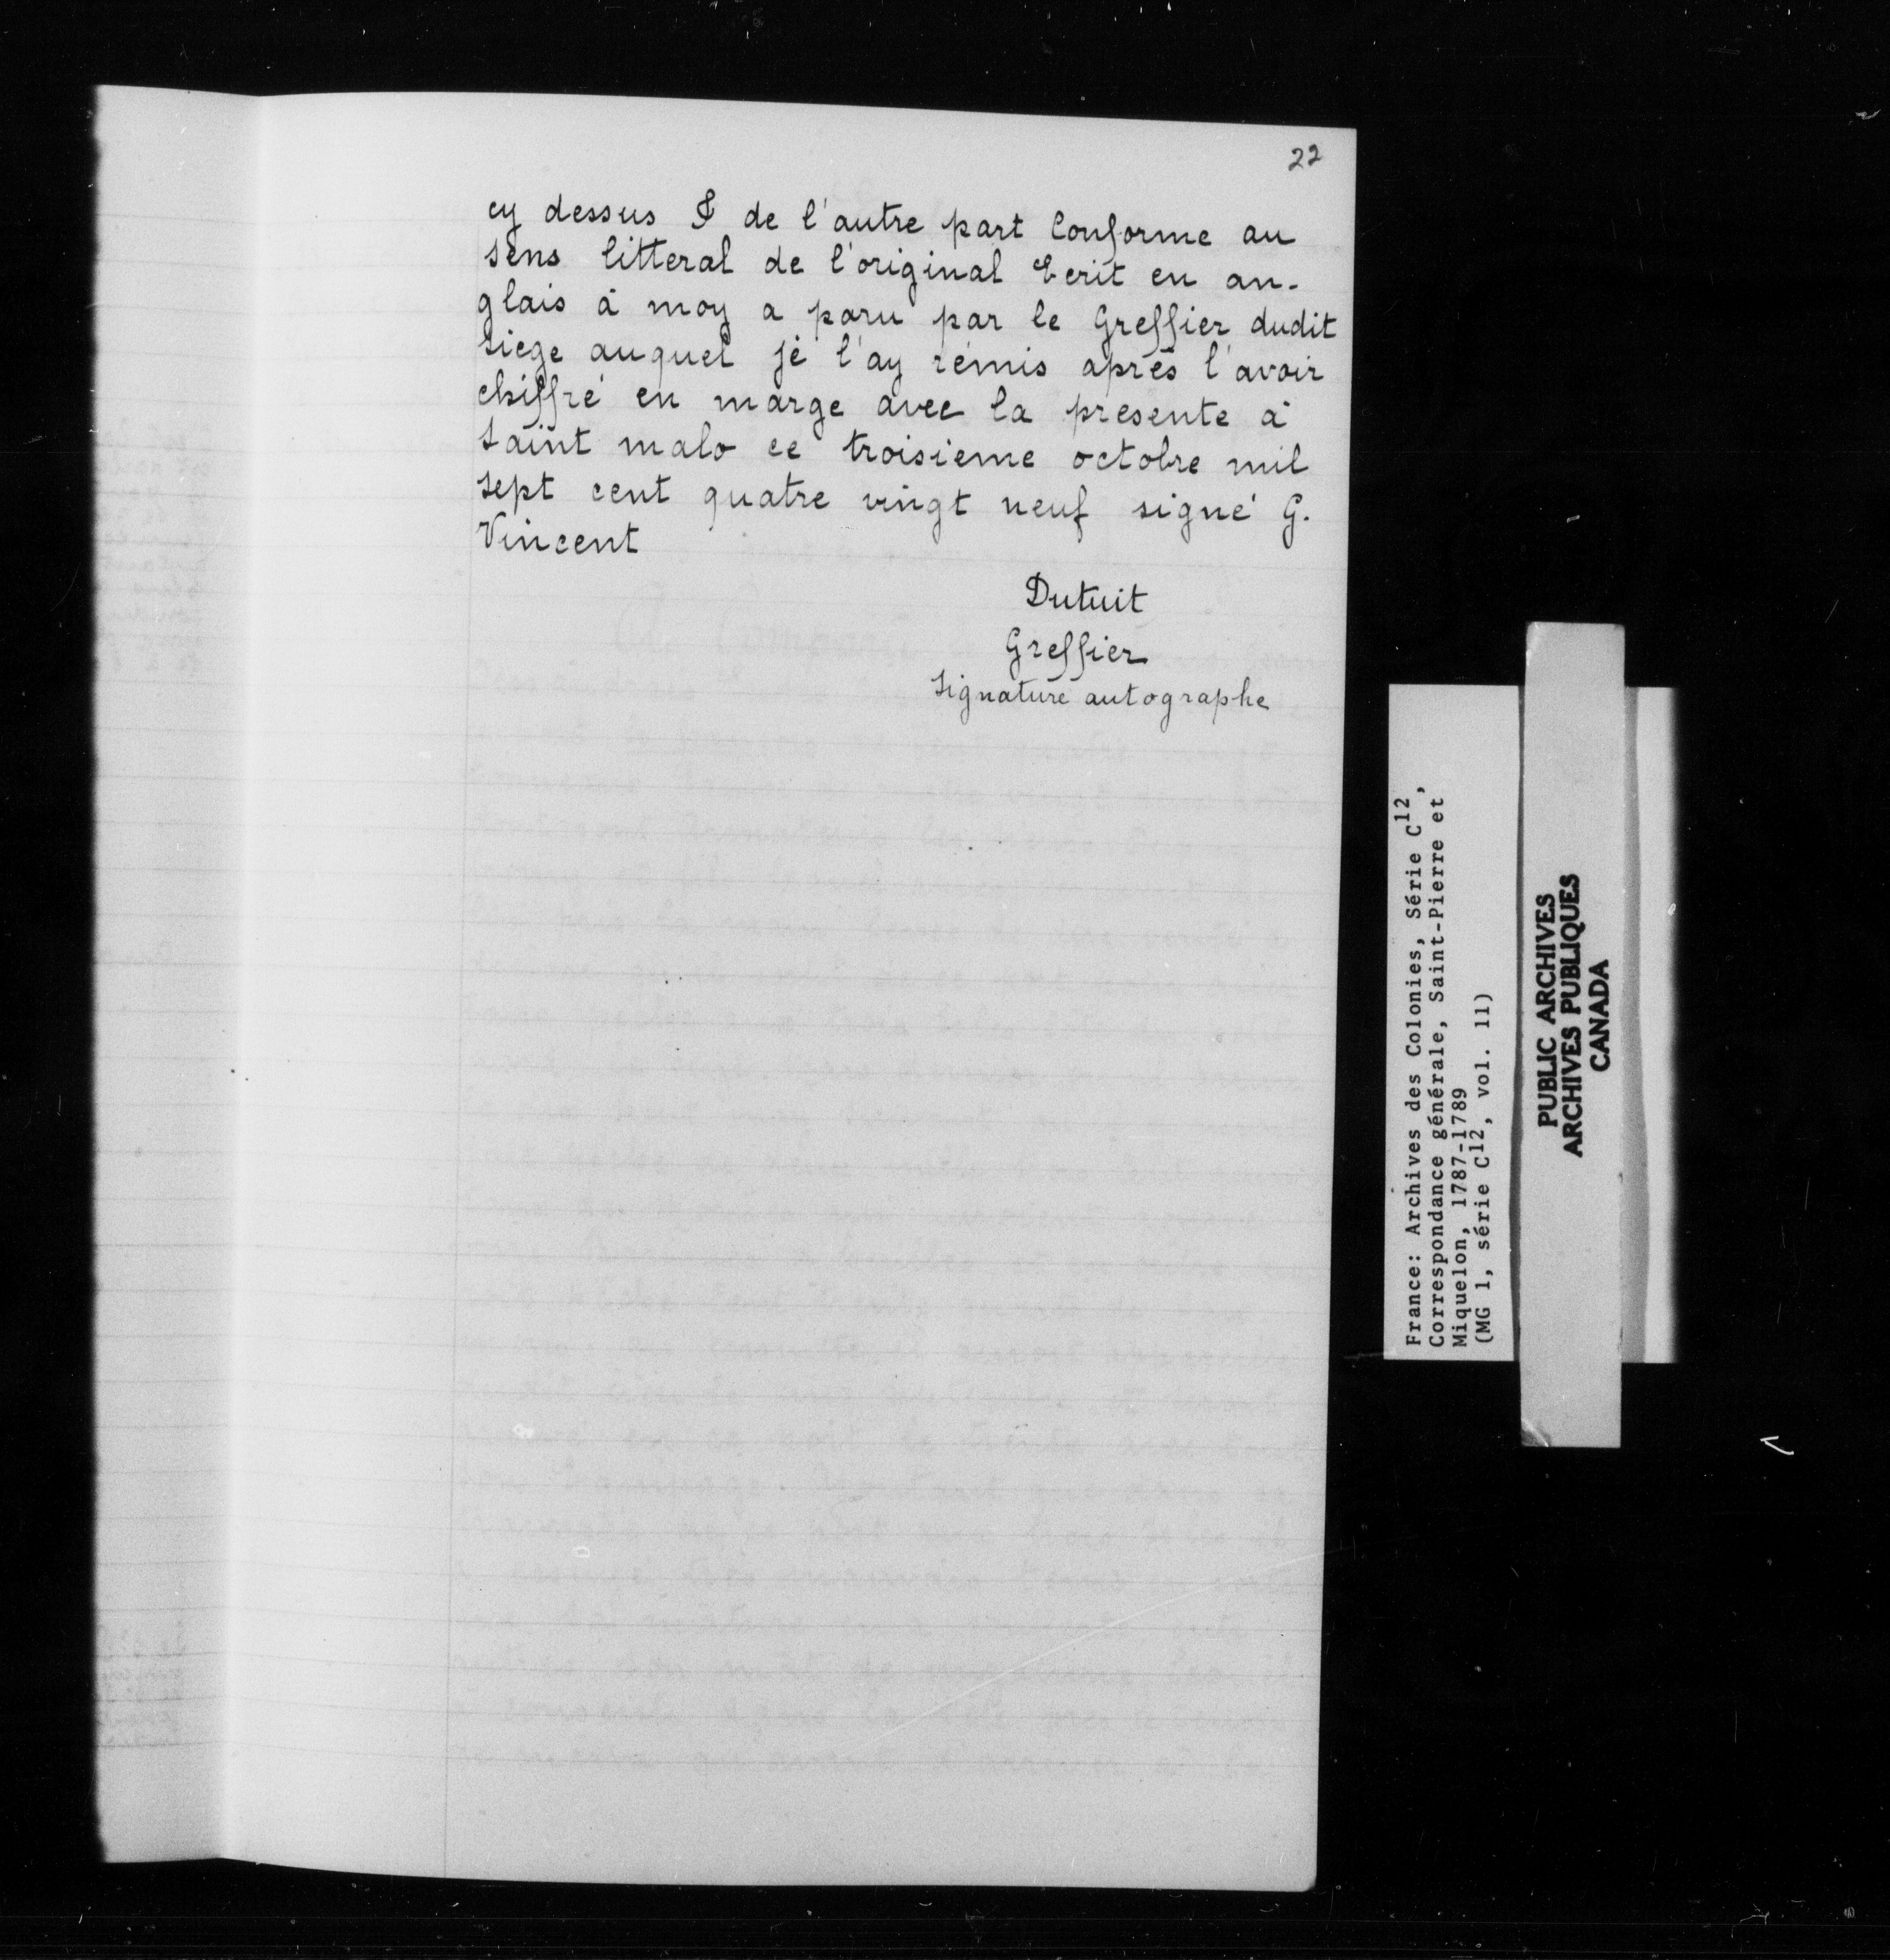 22
cy dessus & de l'autre part Conforme au
sens litteral de l'original Ecrit en an-
glais à moy a paru par le Greffier dudit
siege auquel je l'ay remis après l'avoir
chiffré en marge avec la presente à
saint malo ce troisieme octobre mil
sept cent quatre vingt neuf signé G.
Vincent
Dutuit
Greffier
signature autographe
France: Archives des Colonies, Série C12,
Correspondance générale, Saint-Pierre et
Miquelon, 1787-1789
(MG 1, série C12, vol. 11)
PUBLIC ARCHIVES
ARCHIVES PUBLIQUES
CANADA